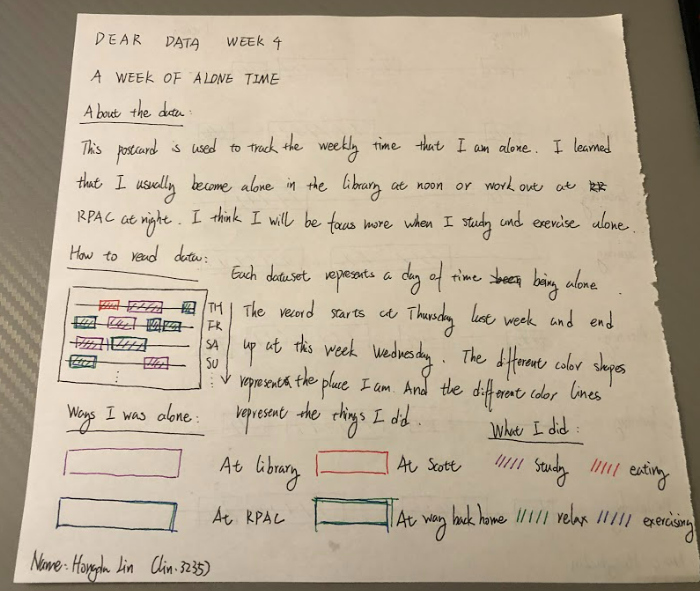 DEAR DATA WEEK 4
A WEEK OF ALONE TIME
About the data:
This postcard is used to track the weekly time that I am alone. I learned
that I usually become alone in the library at noon or work out at
RPAC at night. I think I will be focus more when I study and exercise alone.
How to read data:
Each dataset represents a day of time being alone.
TH
FR
SA
SU
The record starts at Thursday last week and end
up at this week Wednesday. The different color shapes
represents the place I am. And the different color lines
represent the things I did.
Ways I was alone:
What I did:
At library
At Scott
study
eating
At RPAC
At way back home
relax
exercising
Name: Hongda Lin (lin.3235)